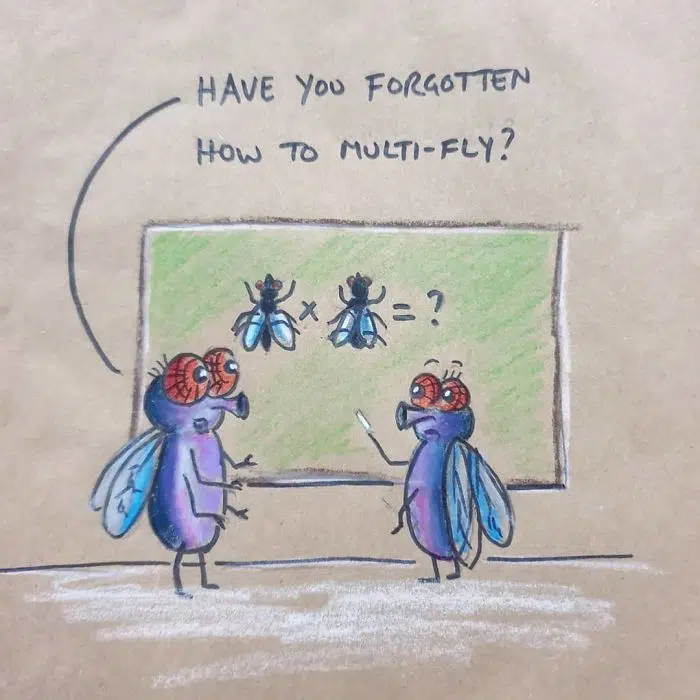 HAVE YOU FORGOTTEN
HOW TO MULTI-FLY?
x = ?